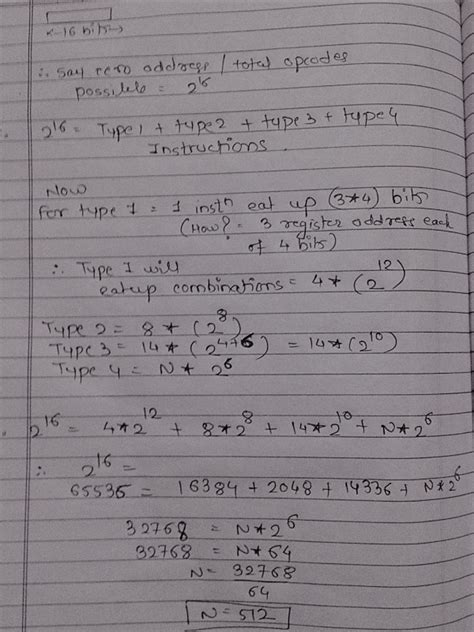 <-16 bits->
∴ say zero address / total opcodes
possible = 2^16
2^16 = Type 1 + type 2 + type 3 + type 4
Instructions.
Now
For type 1 = 1 instn eat up (3*4) bits
(How? = 3 register address each
of 4 bits)
∴ Type 1 will
eatup combinations = 4 * (2^12)
Type 2 = 8 * (2^8)
Type 3 = 14 * (2^4+6) = 14 * (2^10)
Type 4 = N * 2^6
2^16 = 4*2^12 + 8*2^8 + 14*2^10 + N*2^6
∴ 2^16 =
65536 = 16384 + 2048 + 14336 + N*2^6
32768 = N*2^6
32768 = N*64
N = 32768
64
N = 512